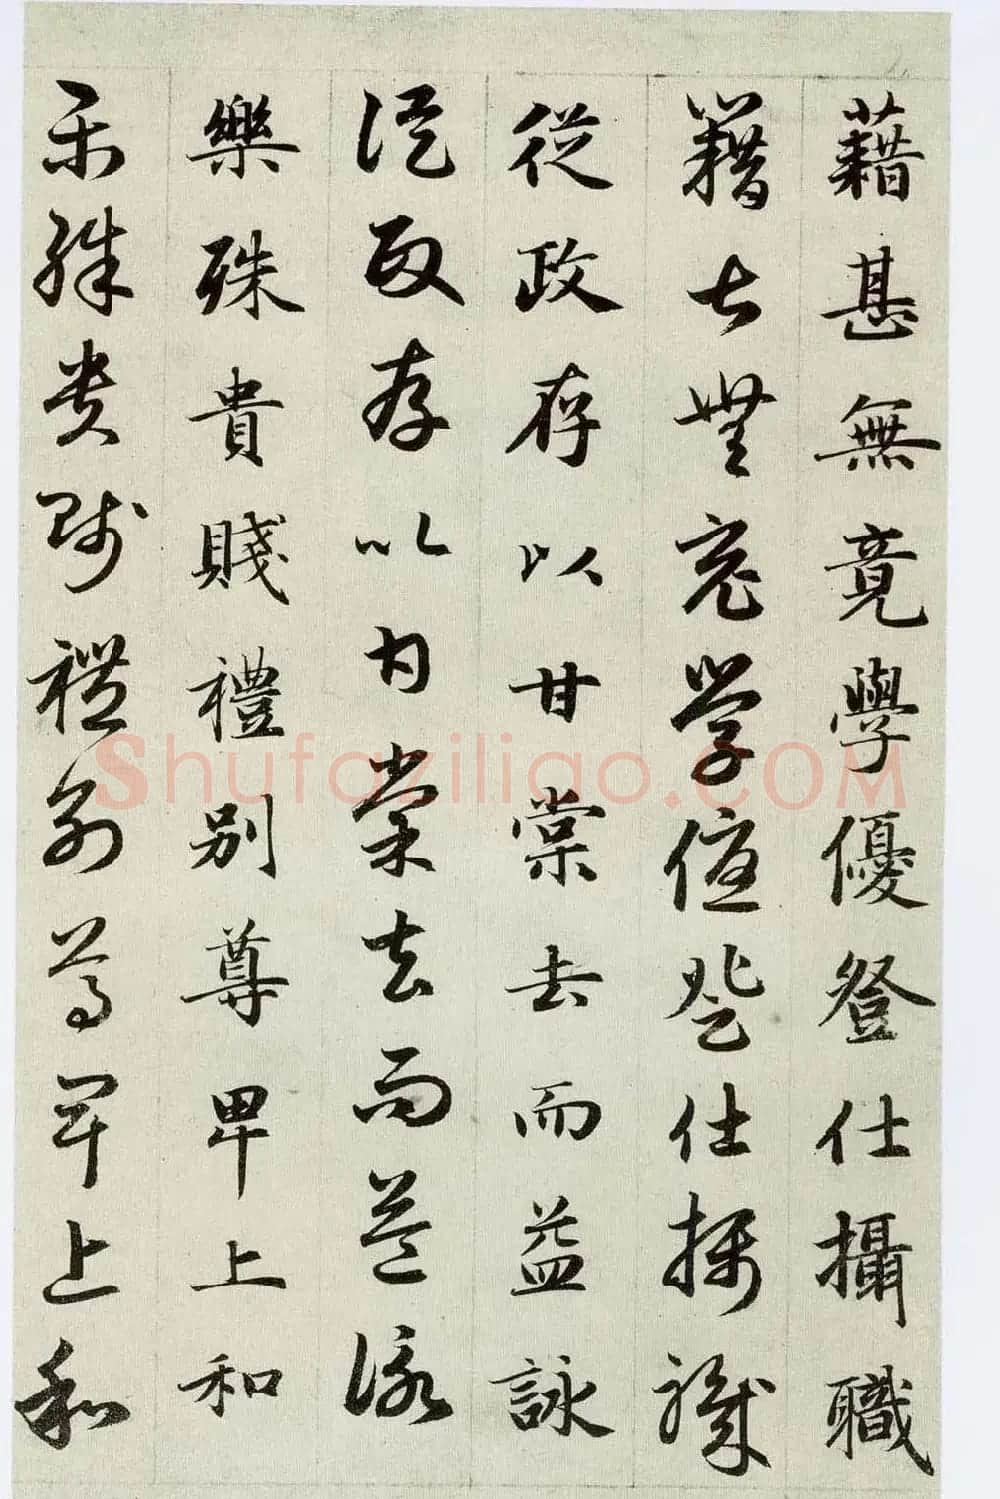 藉甚無竟學優登仕攝職
籍甚無竟學優登仕攝職
從政存以甘棠去而益詠
從政存以甘棠去而益詠
樂殊貴賤禮別尊卑上和
樂殊貴賤禮別尊卑上和
Shufaziliao.COM